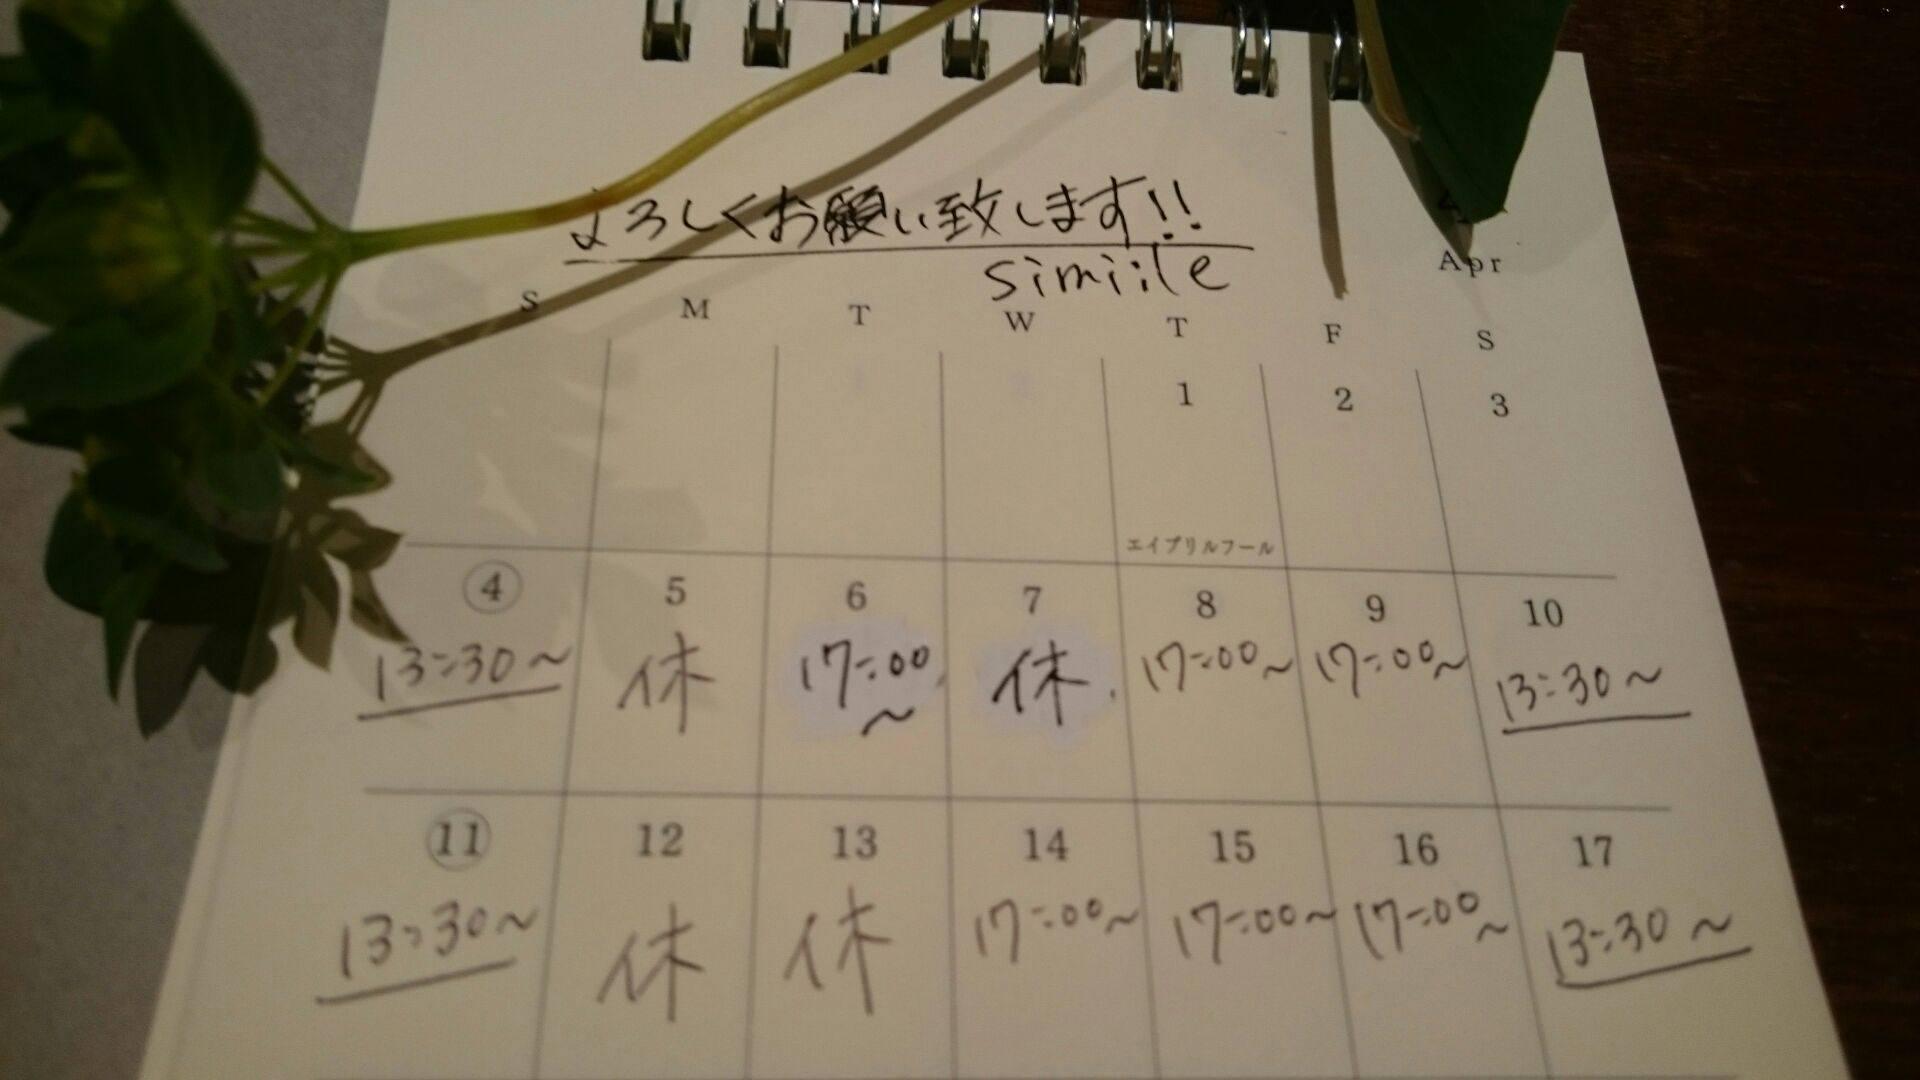 よろしくお願い致します!!
simiile
Apr
S M T W T F S
1 2 3
エイプリルフール
4 5 6 7 8 9 10
13:30〜 休 17:00〜 休 17:00〜 17:00〜 13:30〜
11 12 13 14 15 16 17
13:30〜 休 休 17:00〜 17:00〜 17:00〜 13:30〜